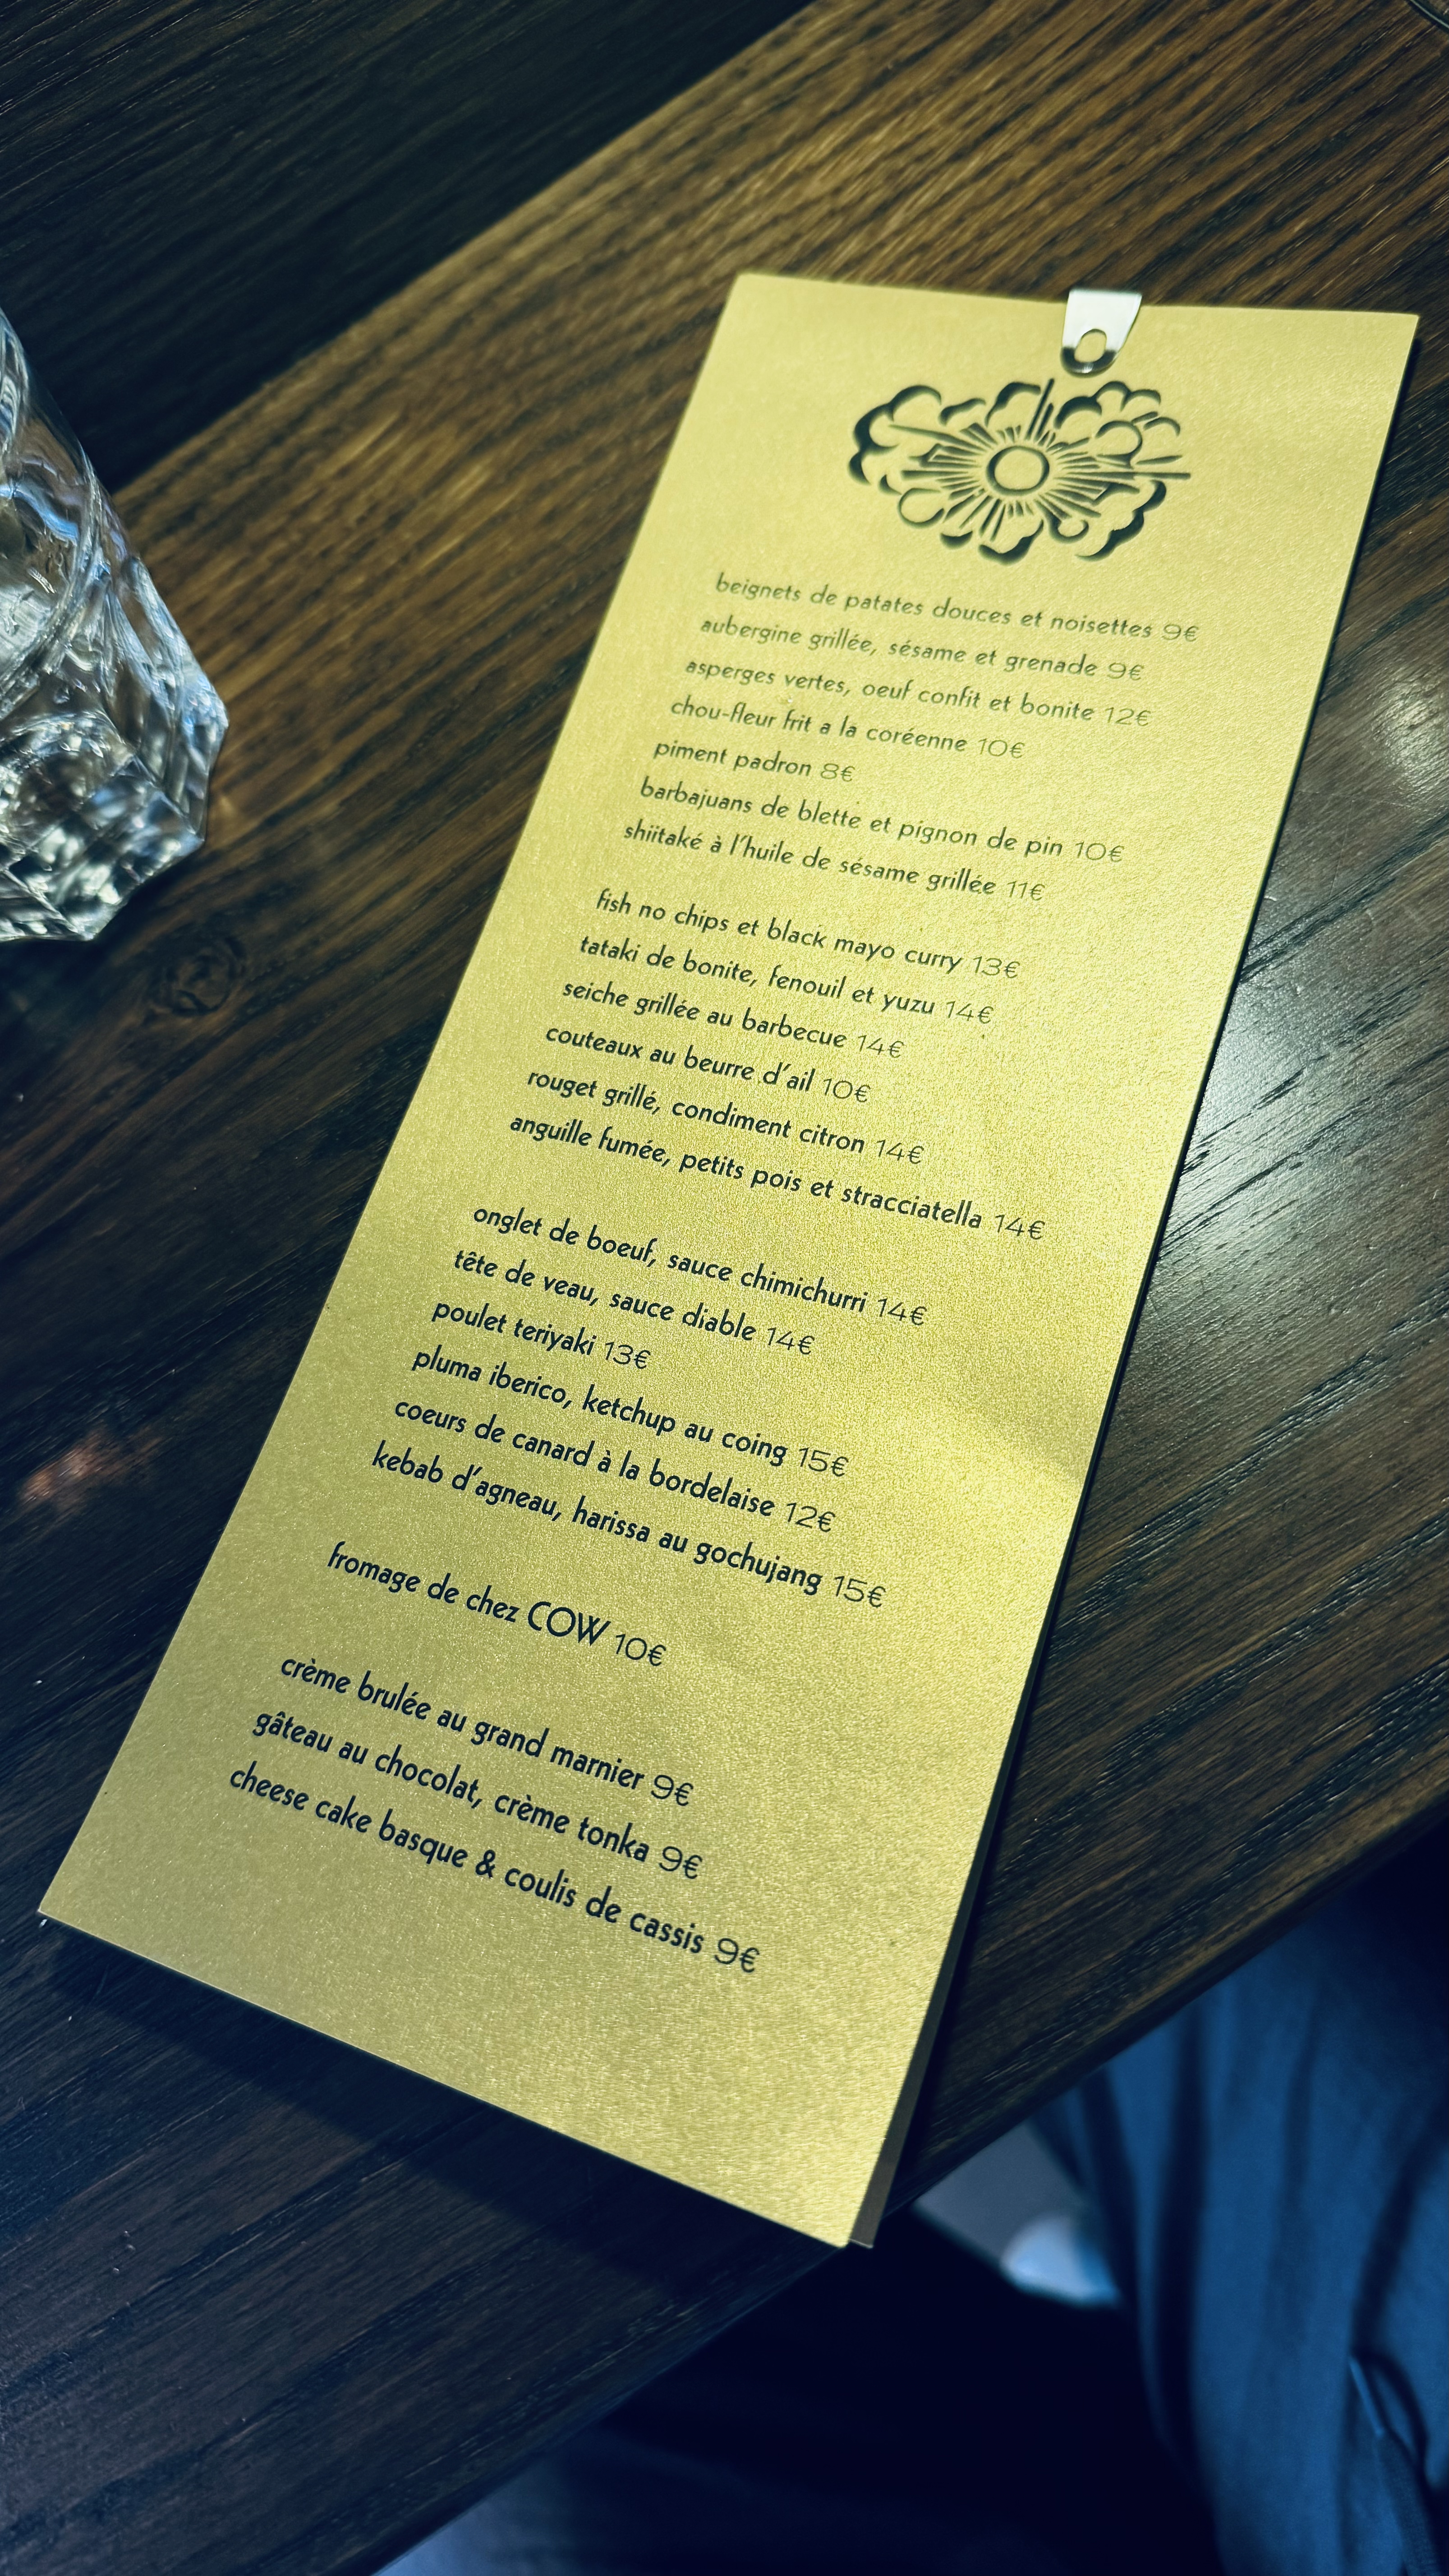 beignets de patates douces et noisettes 9€
aubergine grillée, sésame et grenade 9€
asperges vertes, oeuf confit et bonite 12€
chou-fleur frit a la coréenne 10€
piment padron 8€
barbajuans de blette et pignon de pin 10€
shiitaké à l'huile de sésame grillée 11€
fish no chips et black mayo curry 13€
tataki de bonite, fenouil et yuzu 14€
seiche grillée au barbecue 14€
couteaux au beurre d'ail 10€
rouget grillé, condiment citron 14€
anguille fumée, petits pois et stracciatella 14€
onglet de boeuf, sauce chimichurri 14€
tête de veau, sauce diable 14€
poulet teriyaki 13€
pluma iberico, ketchup au coing 15€
coeurs de canard à la bordelaise 12€
kebab d'agneau, harissa au gochujang 15€
fromage de chez COW 10€
crème brulée au grand marnier 9€
gâteau au chocolat, crème tonka 9€
cheese cake basque & coulis de cassis 9€